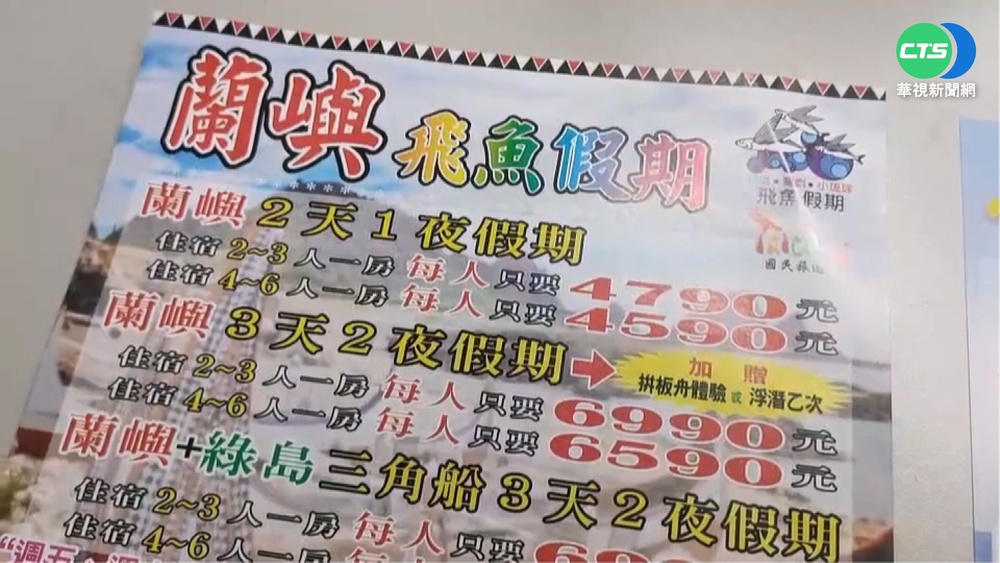 CTS
華視新聞網
蘭嶼 飛魚假期
小琉球
飛魚假期
蘭嶼 2天1夜假期
住宿 2~3 人一房 每人只要 4790元
住宿 4~6 人一房 每人只要 4590元
蘭嶼 3天2夜假期
加贈
拼板舟體驗 或 浮潛乙次
住宿 2~3 人一房 每人只要 6990元
住宿 4~6 人一房 每人只要 6590元
蘭嶼+綠島 三角船3天2夜假期
住宿 2~3 人一房 每人只要
住宿 4~6 人一